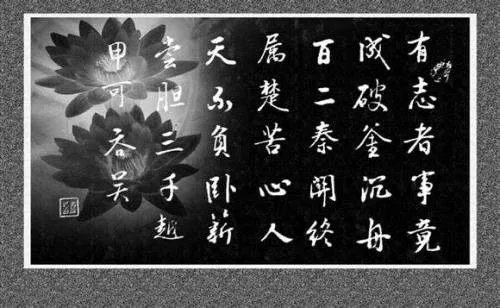 有志者事竟
成破釜沉舟
百二秦關終
属楚苦心人
天不負卧薪
尝胆三千越
甲可吞吴